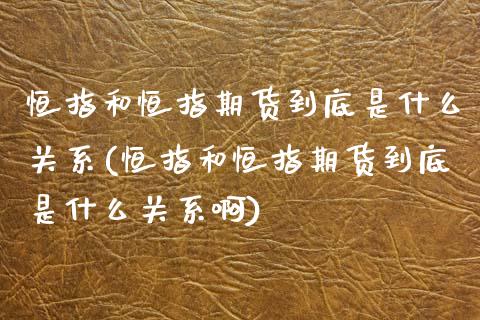 恒指和恒指期货到底是什么
关系(恒指和恒指期货到底
是什么关系啊)